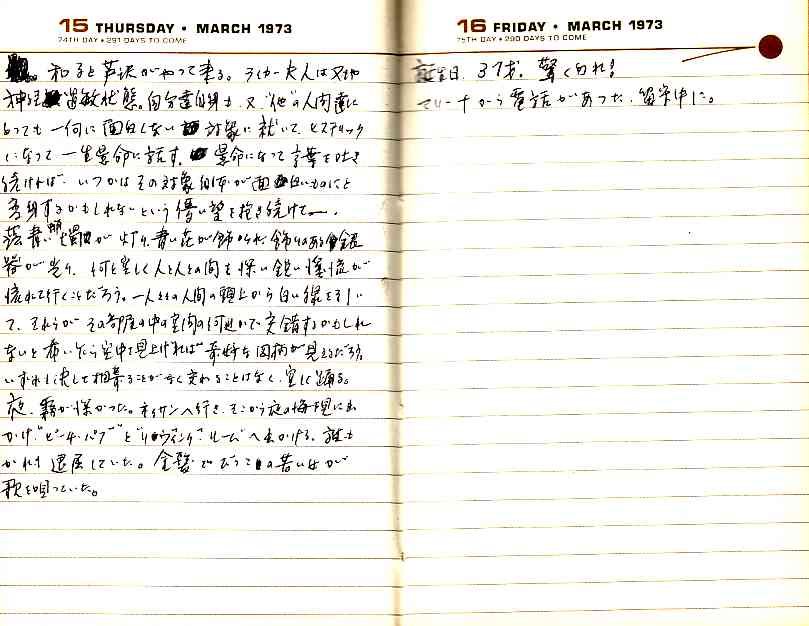 15 THURSDAY • MARCH 1973
74TH DAY • 291 DAYS TO COME
和子と芦沢がやって来る。ライカー夫人は又もや
神経過敏状態、自分達自身も、又、"他"の人間達に
とっても一何に面白くない対象に就いて、ヒステリック
になって一生懸命に話す。懸命になって言葉を吐き
続ければ、いつかはその対象自体が面白いものにと
変身するかもしれないという儚い望を抱き続けて—.
蒼青い蝋燭が灯り、青い花が飾られ、飾りのある銀
器が光り、何と空しく人と人との間を深い鋭い
流れて行くことだろう。一人一人の人間の頭上から白い線を引い
て、それらがその部屋の中の空間の何処かで交錯するかもしれ
ないと希いながら空中を見上げれば奇妙な図柄が見えるだろう。
いずれも決して相寄ることがなく交わることはなく、宙に踊る。
夜、霧が深かった。ネイサンへ行き、そこから夜の海を見に出
かけ、"ビーチ・パブ"と"リヴィング・ルーム"へ出かける。誰も
かれも退屈していた。金髪でひとりの若い女が
歌を唄っていた。
16 FRIDAY • MARCH 1973
75TH DAY • 290 DAYS TO COME
誕生日、37才。驚くなかれ!
マリーナから電話があった、留守中に。